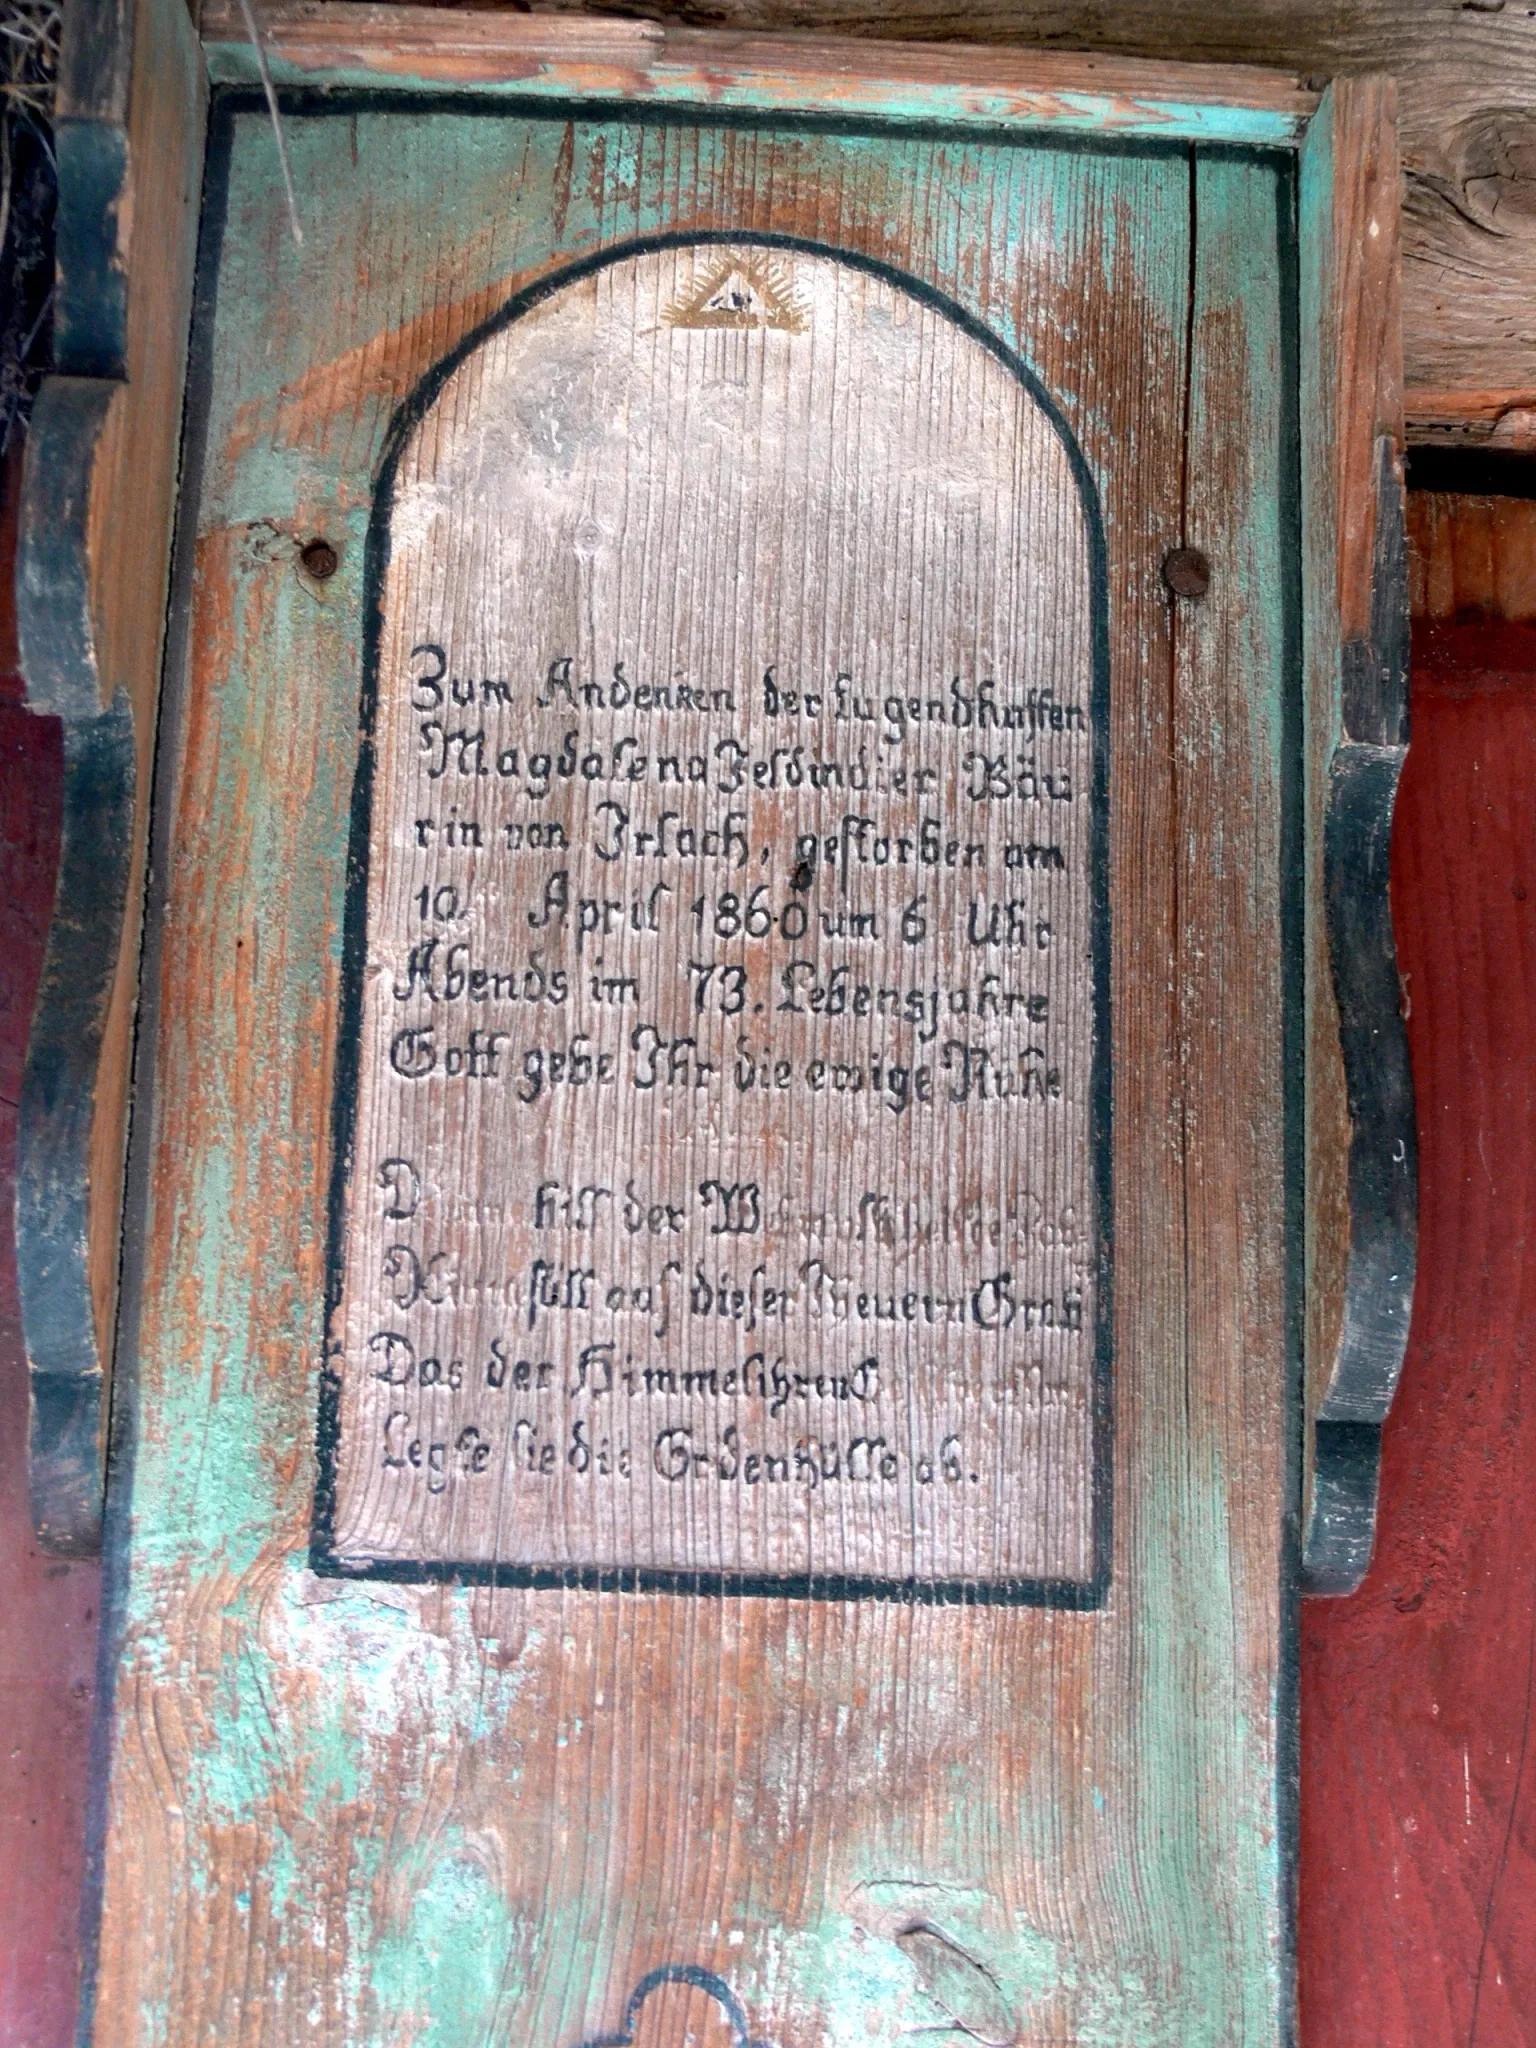 Zum Andenken der tugendhaften
Magdalena Feldindier Bäu
rin von Irlach, gestorben am
10. April 1860 um 6 Uhr
Abends im 73. Lebensjahre
Gott gebe Ihr die ewige Ruhe
hill der
still auf dieser Theuern Grab
Das der
Legte sie die Erdenhülle ab.